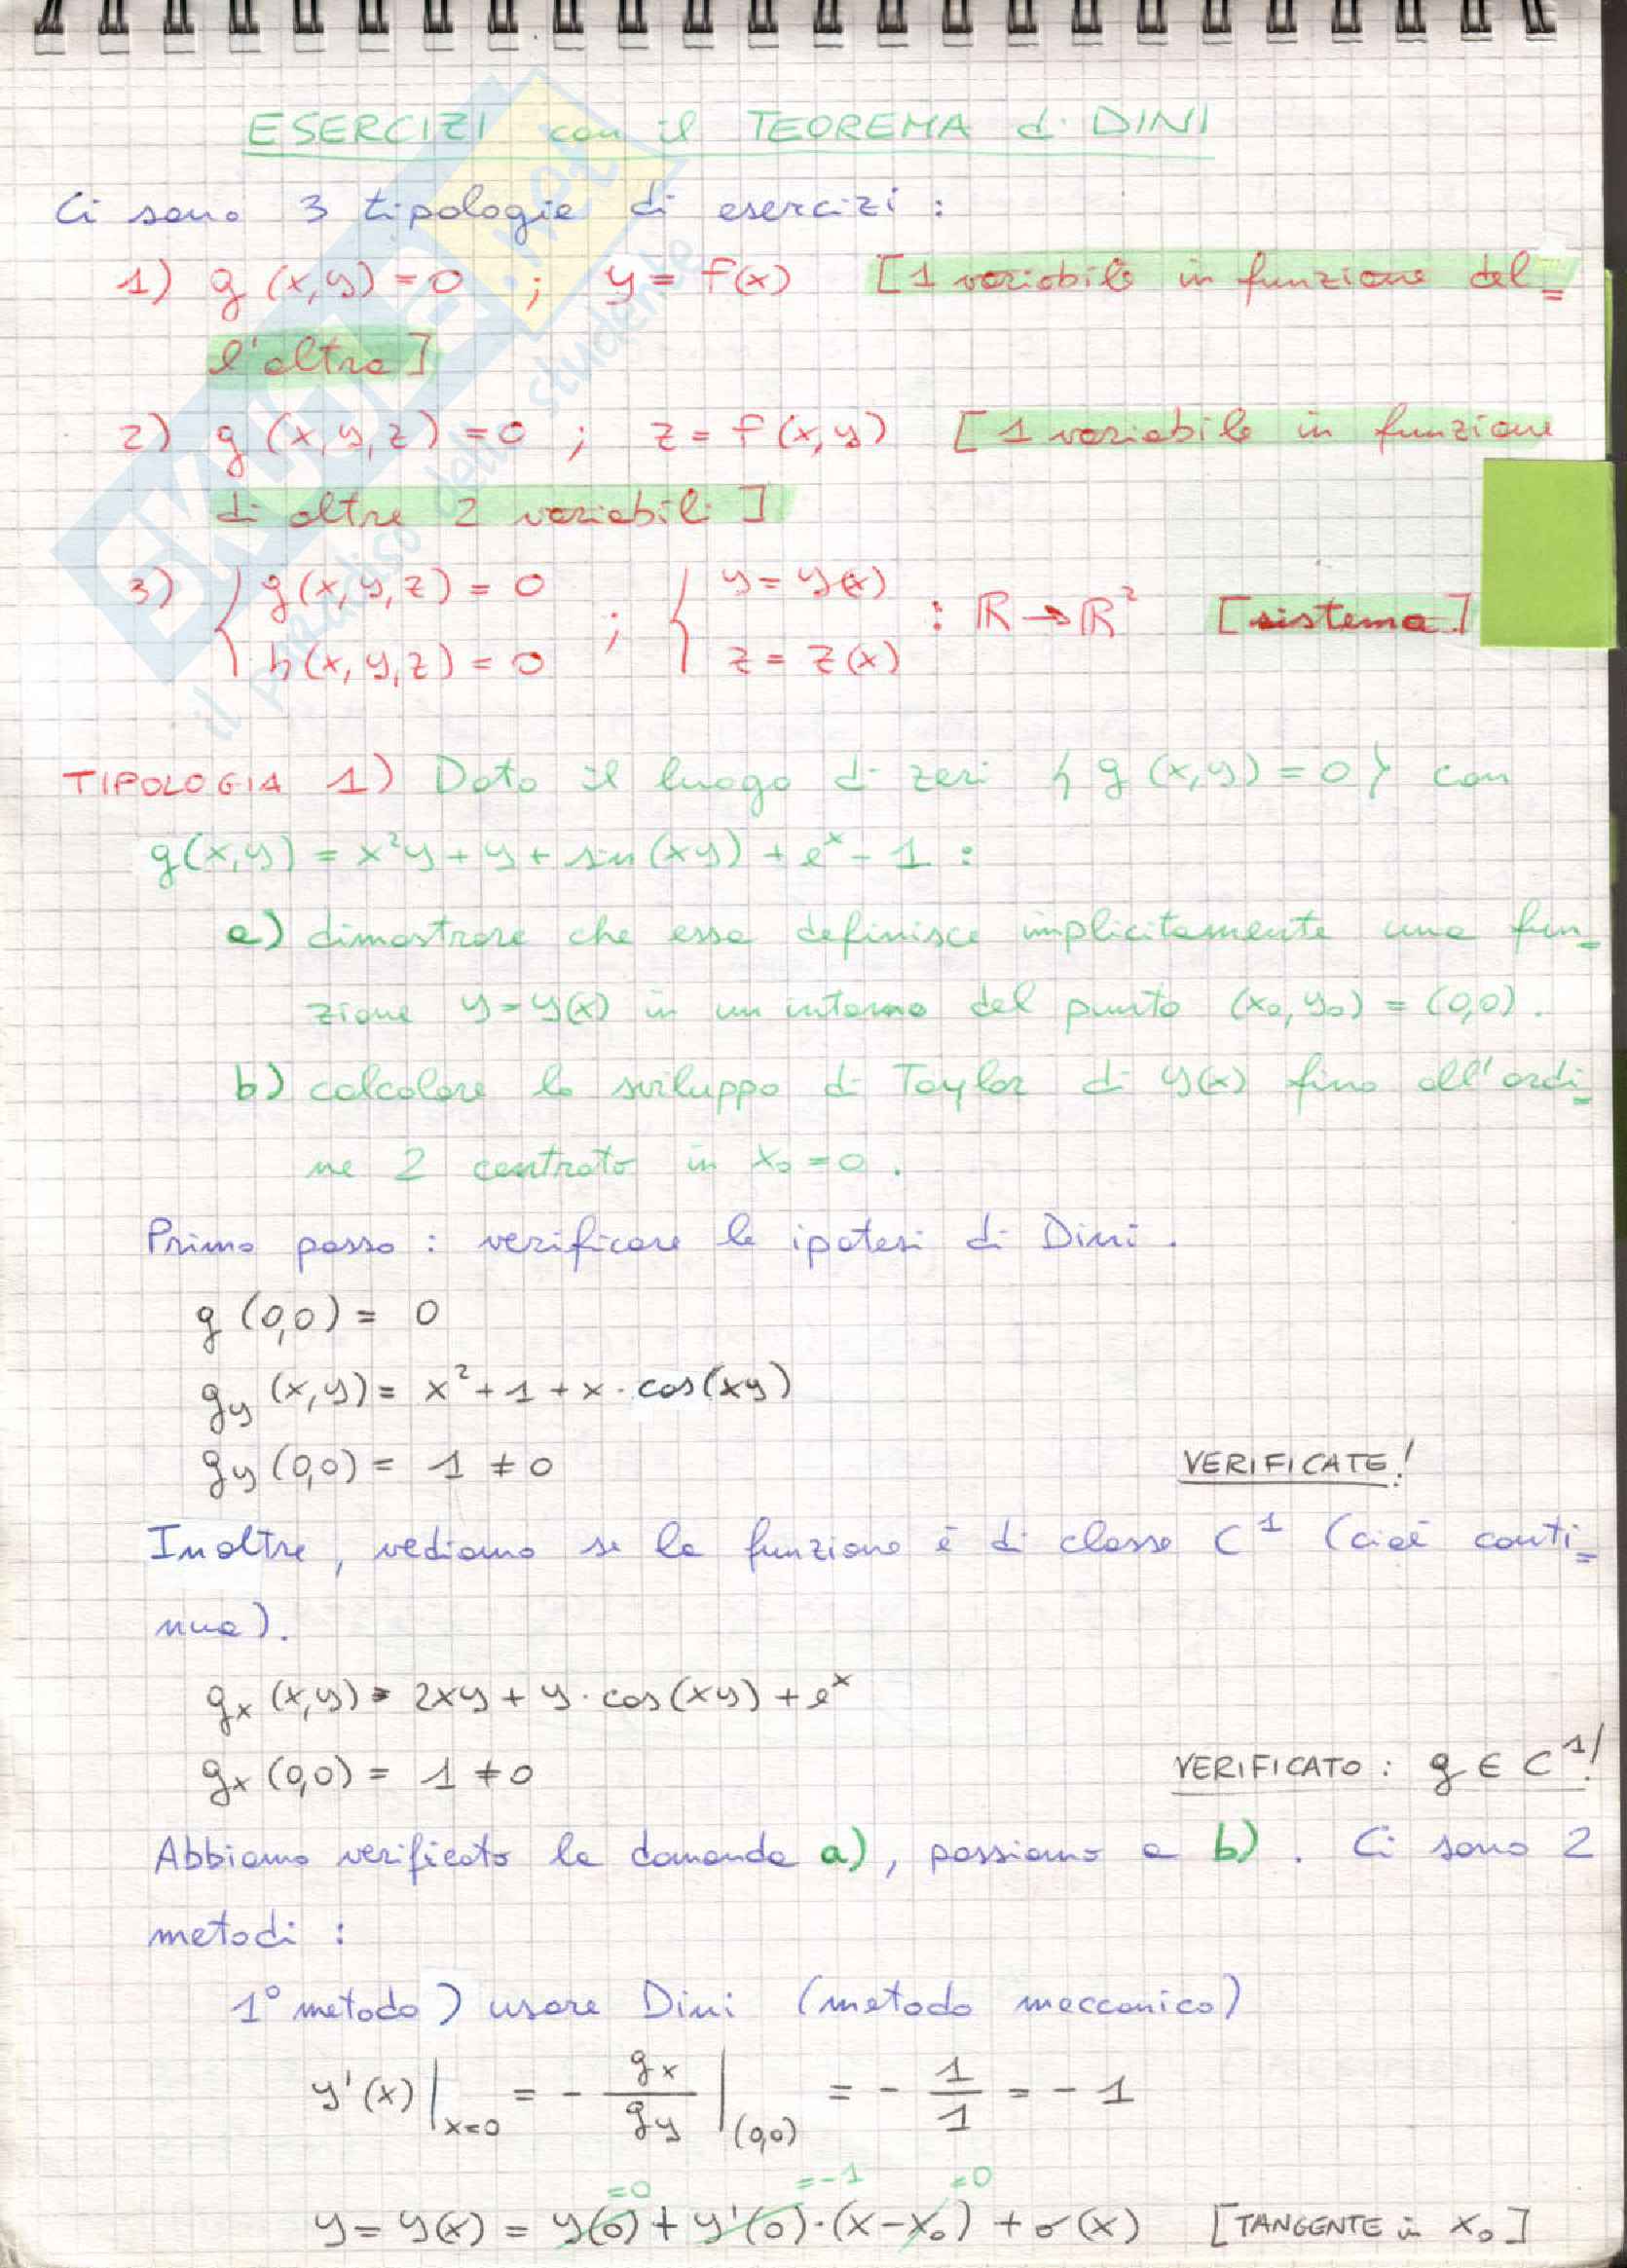 ESERCIZI con il TEOREMA di DINI
Ci sono 3 tipologie di esercizi :
1) g (x,y) = 0 ; y = f(x) [1 variabile in funzione del=
l'altra]
2) g (x,y,z) = 0 ; z = f(x,y) [1 variabile in funzione
di altre 2 variabili]
3) { g(x,y,z) = 0 ; { y = y(x) : ℝ → ℝ² [sistema]
h(x,y,z) = 0 z = z(x)
TIPOLOGIA 1) Dato il luogo di zeri {g (x,y) = 0} con
g(x,y) = x²y + y + sin(xy) + eˣ - 1 :
a) dimostrare che essa definisce implicitamente una fun=
zione y = y(x) in un intorno del punto (x₀,y₀) = (0,0).
b) calcolare lo sviluppo di Taylor di y(x) fino all'ordi=
ne 2 centrato in x₀ = 0.
Primo passo : verificare le ipotesi di Dini.
g (0,0) = 0
g_y (x,y) = x² + 1 + x · cos(xy)
g_y (0,0) = 1 ≠ 0 VERIFICATE!
Inoltre, vediamo se la funzione è di classe C¹ (cioè conti=
nua).
g_x (x,y) = 2xy + y · cos(xy) + eˣ
g_x (0,0) = 1 ≠ 0 VERIFICATO : g ∈ C¹!
Abbiamo verificato la domanda a), passiamo a b). Ci sono 2
metodi :
1° metodo) usare Dini (metodo meccanico)
y'(x)|_{x=0} = - g_x/g_y |_{(0,0)} = - 1/1 = - 1
=0 =-1 =0
y = y(x) = y(0) + y'(0)·(x-x₀) + σ(x) [TANGENTE in x₀]
SKUOLA.net
il paradiso dello studente